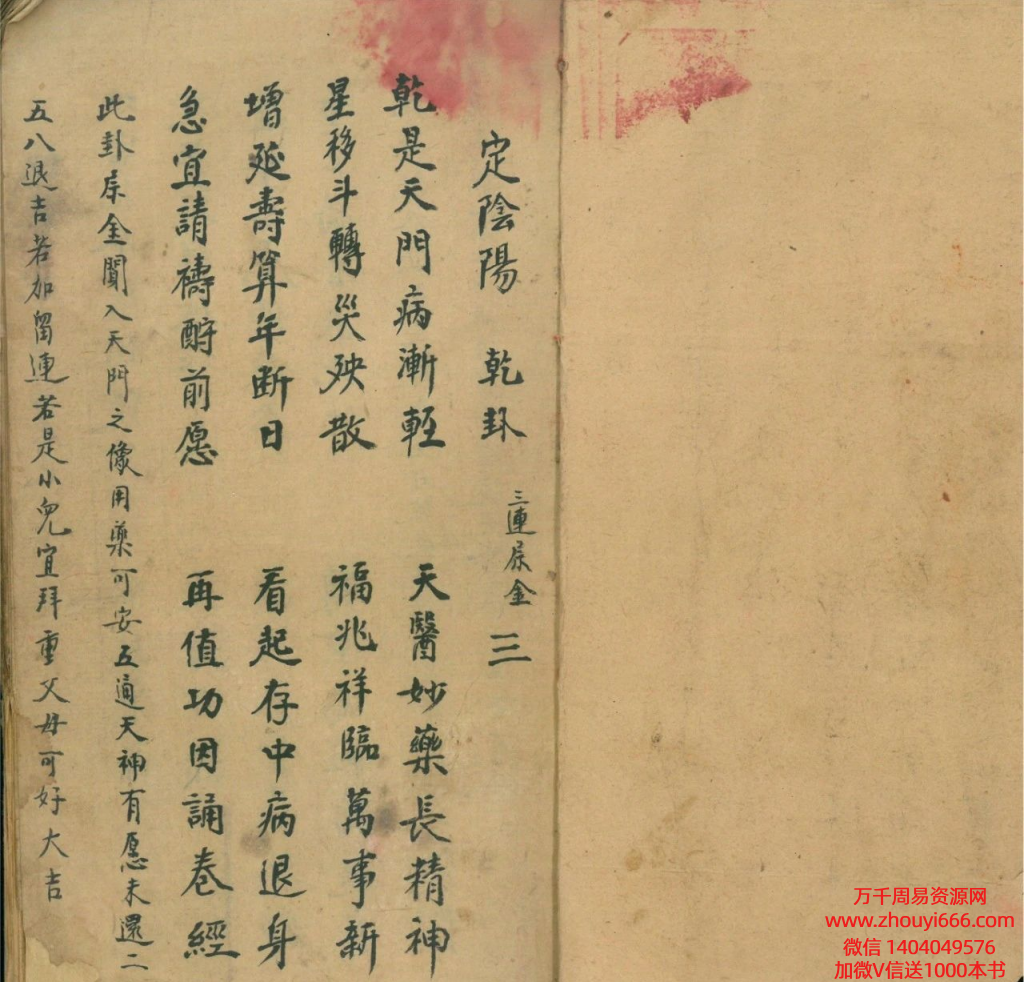 定陰陽 乾卦 三連屬金 ☰
乾是天門病漸輕 天醫妙藥長精神
星移斗轉災殃散 福兆祥臨萬事新
增延壽算年断日 看起存中病退身
急宜請禱酧前愿 再值功因誦卷經
此卦屬金闖入天門之像用藥可安五道天神有愿未還二
五八退吉若加留連若是小兒宜拜重父母可好大吉
万千周易资源网
www.zhouyi666.com
微信 1404049576
加微V信送1000本书